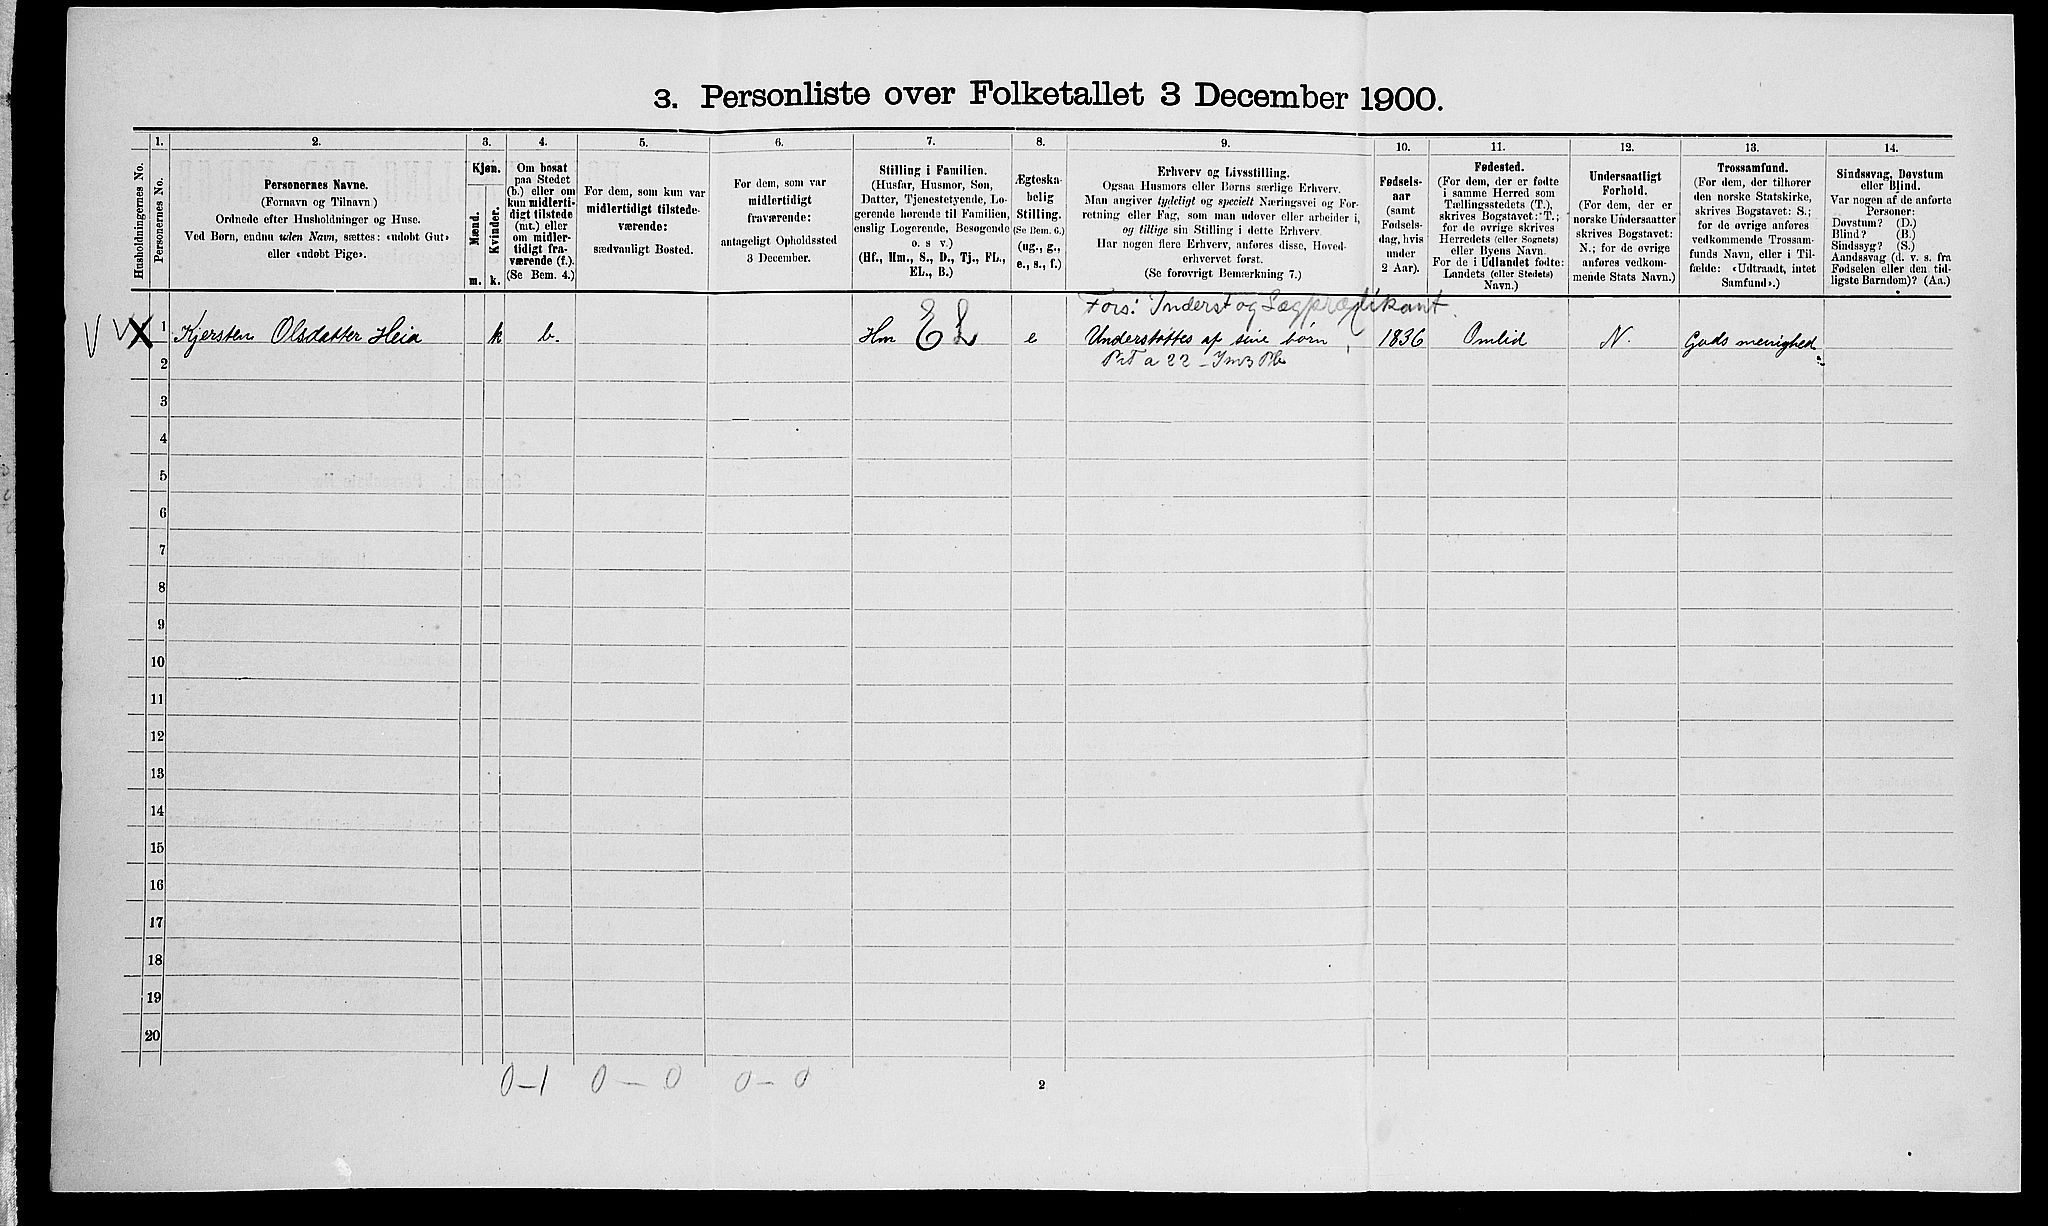 3. Personliste over Folketallet 3 December 1900.
Husholdningernes No.
1.
Personernes No.
2.
Personernes Navne.
(Fornavn og Tilnavn)
Ordnede efter Husholdninger og Huse.
Ved Børn, endnu uden Navn, sættes: «udøbt Gut»
eller «udøbt Pige».
3.
Kjøn.
Mænd.
Kvinder.
m. k.
4.
Om bosat
paa Stedet
(b.) eller om
kun midlerti-
digt tilstede
(mt.) eller
om midler-
tidigt fra-
værende (f.).
(Se Bem. 4.)
5.
For dem, som kun var
midlertidigt tilstede-
værende:
sædvanligt Bosted.
6.
For dem, som var
midlertidigt
fraværende:
antageligt Opholdssted
3 December.
7.
Stilling i Familien.
(Husfar, Husmor, Søn,
Datter, Tjenestetyende, Lo-
gerende hørende til Familien,
enslig Logerende, Besøgende
o. s v.)
(Hf., Hm., S., D., Tj., FL.,
EL., B.)
8.
Ægteska-
belig
Stilling.
(Se Bem. 6.)
(ug., g.,
e., s., f.)
9.
Erhverv og Livsstilling.
Ogsaa Husmors eller Børns særlige Erhverv.
Man angiver tydeligt og specielt Næringsvei og For-
retning eller Fag, som man udøver eller arbeider i,
og tillige sin Stilling i dette Erhverv.
Har nogen flere Erhverv, anføres disse, Hoved-
erhvervet først.
(Se forøvrigt Bemærkning 7.)
10.
Fødsels-
aar
(samt
Fødsels-
dag, hvis
under
2 Aar).
11.
Fødested.
(For dem, der er fødte
i samme Herred som
Tællingsstedets (T.),
skrives Bogstavet: T.;
for de øvrige skrives
Herredets (eller Sognets)
eller Byens Navn.
For de i Udlandet fødte:
Landets (eller Stedets)
Navn.)
12.
Undersaatligt
Forhold.
(For dem, der er
norske Undersaatter
skrives Bogstavet:
N.; for de øvrige
anføres vedkom-
mende Stats Navn.)
13.
Trossamfund.
(For dem, der tilhører
den norske Statskirke,
skrives Bogstavet: S.;
for de øvrige anføres
vedkommende Trossam-
funds Navn, eller i Til-
fælde: «Udtraadt, intet
Samfund».)
14.
Sindssvag, Døvstum
eller Blind.
Var nogen af de anførte
Personer:
Døvstum? (D.)
Blind? (B.)
Sindssyg? (S.)
Aandssvag (d. v. s. fra
Fødselen eller den tid-
ligste Barndom)? (Aa.)
Fors: Inderst og Lægprædikant.
V V X 1 Kjersten Olsdatter Heia k b. Hm EL e Understøttes af sine børn 1836 Omlid N. Guds menighed
2
3
4
5
6
7
8
9
10
11
12
13
14
15
16
17
18
19
20
0-1 0-0 0-0
2